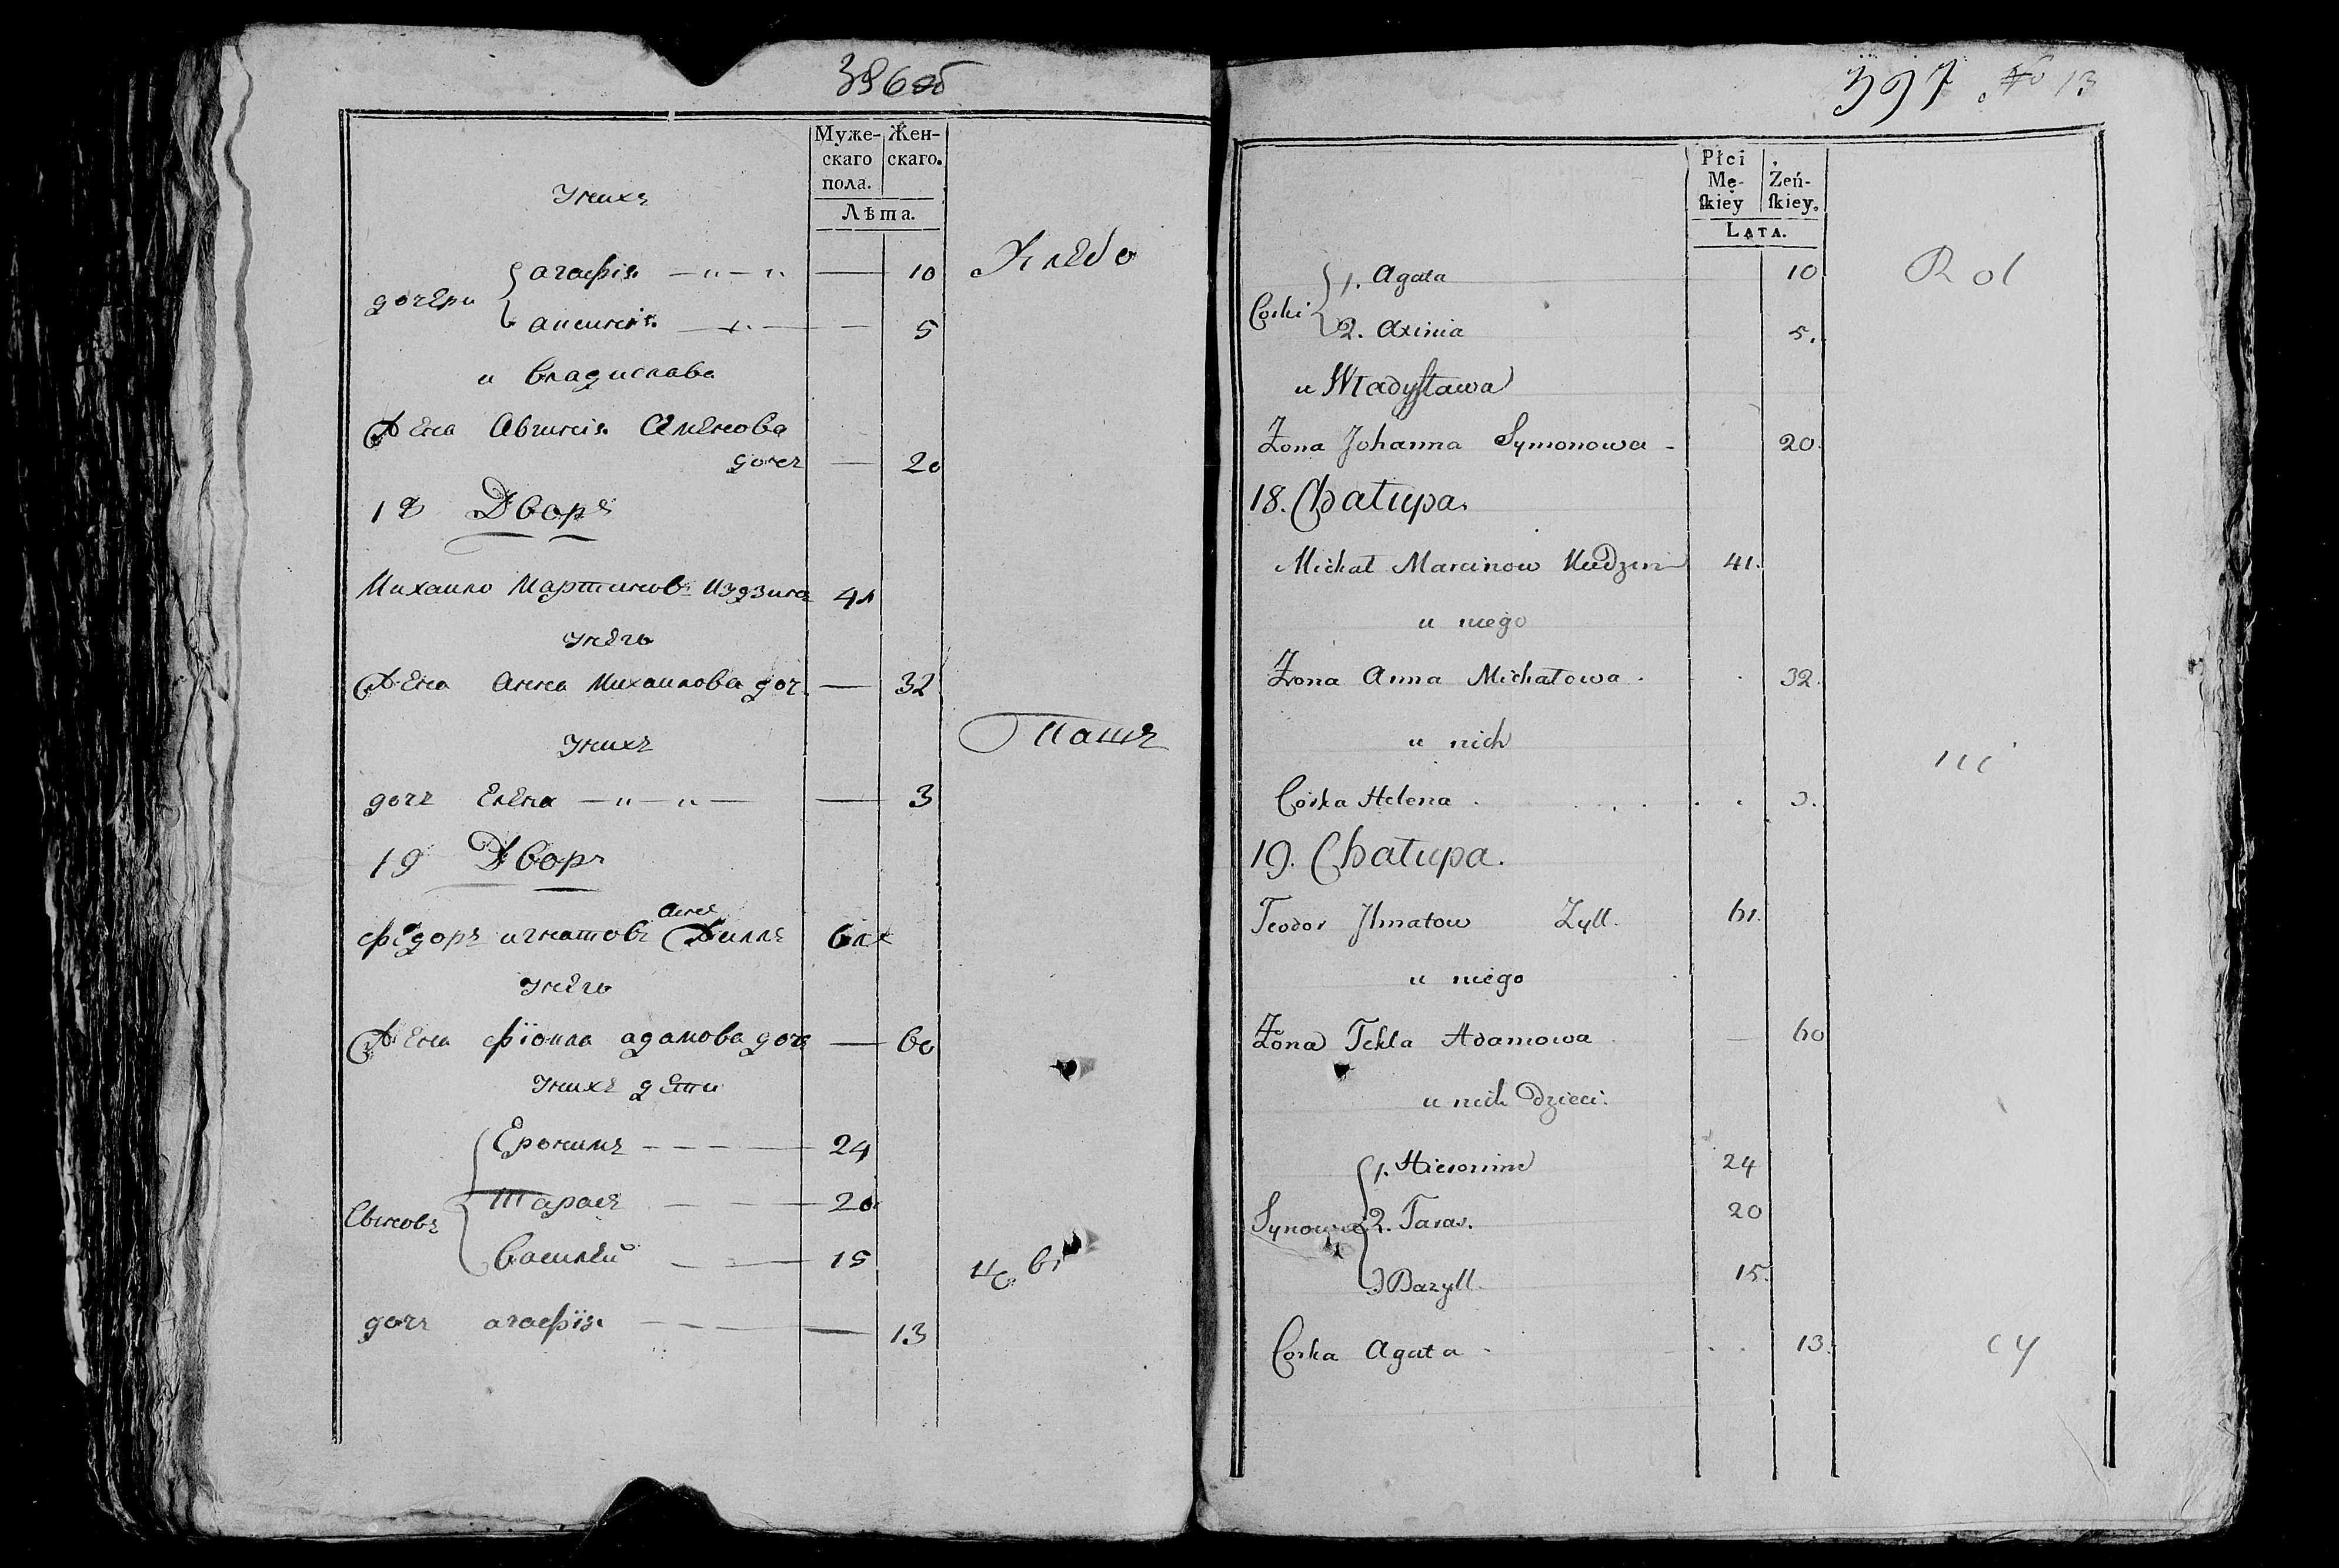 396об
Муже-скаго пола.
Жен-скаго.
Лѣта.
Унихъ
дочери
агафія 10
аксинія 5
и владислава
Жена Авгинія Семенова
дочь 20
18 Дворъ
Михаило Мартиновъ 41
Унего
Жена Анна Михаилова доч 32
Унихъ
дочь Елена 3
19 Дворъ
федоръ игнатовъ Жилль 61
Унего
Жена фіокла адамова доч 60
Унихъ дети
Сынове
Еронимъ 24
Тарасъ 20
Василей 15
дочь агафія 13
Хлебо
Паш
397 № 13
Płci Mę-ſkiey
Żeń-ſkiey.
LATA.
Corki
1. Agata 10
2. Axinia 5.
u Władysława
Żona Johanna Symonowa 20.
18. Chałupa.
Michał Marcinow 41.
u niego
Żona Anna Michałowa 32.
u nich
Corka Helena 3.
19. Chałupa.
Teodor Zyll. 61.
u niego
Żona Tekla Adamowa 60
u nich Dzieci.
Synowie
1. Hieronim 24
2. Taras. 20
3 Bazyll. 15.
Corka Agata 13.
Rol
ni
cy